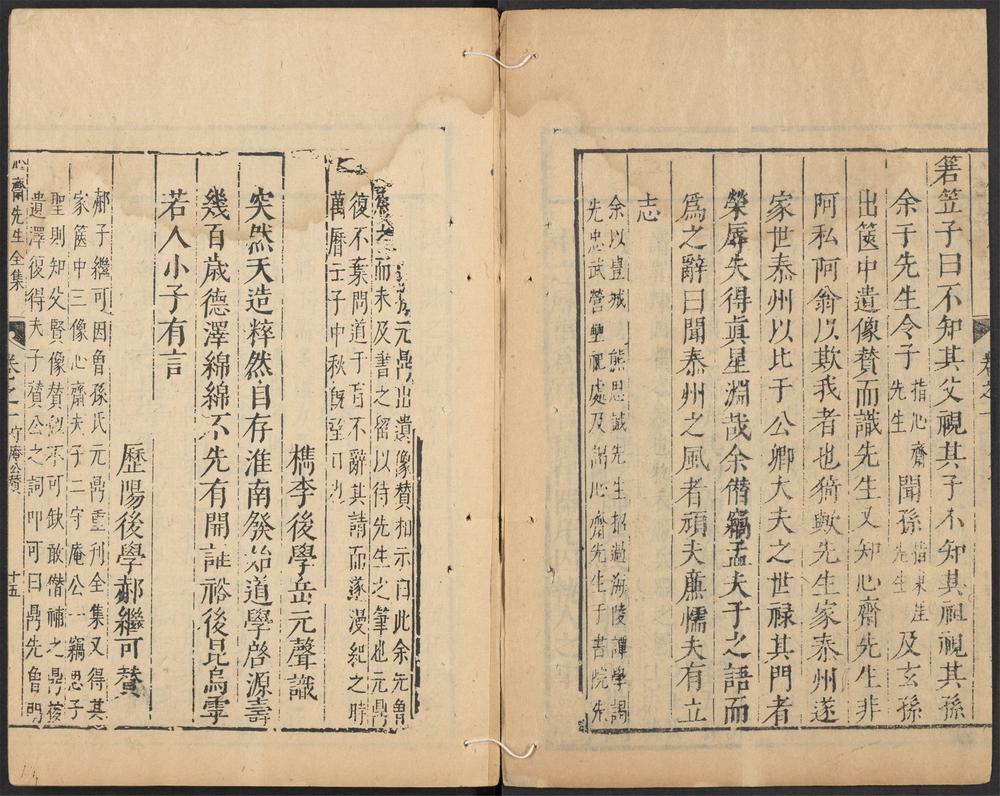 若笠子曰不知其父視其子不知其祖視其孫
余于先生令子指心齋先生聞孫指東崖先生及玄孫
出篋中遺像賛而識先生又知心齋先生非
阿私阿翁以欺我者也猗歟先生家泰州遂
家世泰州以比于公卿大夫之世祿其門者
榮辱失得眞星淵哉余僭竊孟夫子之語而
爲之辭曰聞泰州之風者頑夫廉懦夫有立
志
余以豊城熊思誠先生招過海陵譚學謁
先忠武營壘祀處及謁心齋先生于書院先
元鼎出遺像賛相示曰此余先魯
而未及書之留以待先生之筆也元鼎
復不棄問道于育不辭其請而遂漫紀之時
萬曆壬子中秋既望日也
檇李後學岳元聲識
突然天造粹然自存淮南發始道學啓源壽
幾百歳德澤綿綿不先有開誰裕後昆烏雩
若人小子有言
歷陽後學郝繼可賛
郝子繼可因魯孫氏元鼎重刊全集又得其
家篋中三像心齋夫子二守庵公一竊思子
聖則知父賢像賛不可缺敢僭補之鼎後
遺澤復得夫子賛公之詞叩可曰鼎先魯門
心齋先生全集
卷之一
守庵公賛
十五